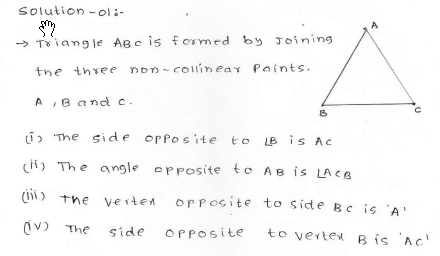 Solution-01:-
→ Triangle ABC is formed by Joining
the three non-collinear Points.
A, B and C.
A
B
C
(i) The side opposite to ∠B is AC
(ii) The angle opposite to AB is ∠ACB
(iii) The vertex opposite to side BC is 'A'
(iv) The side opposite to vertex B is 'AC'